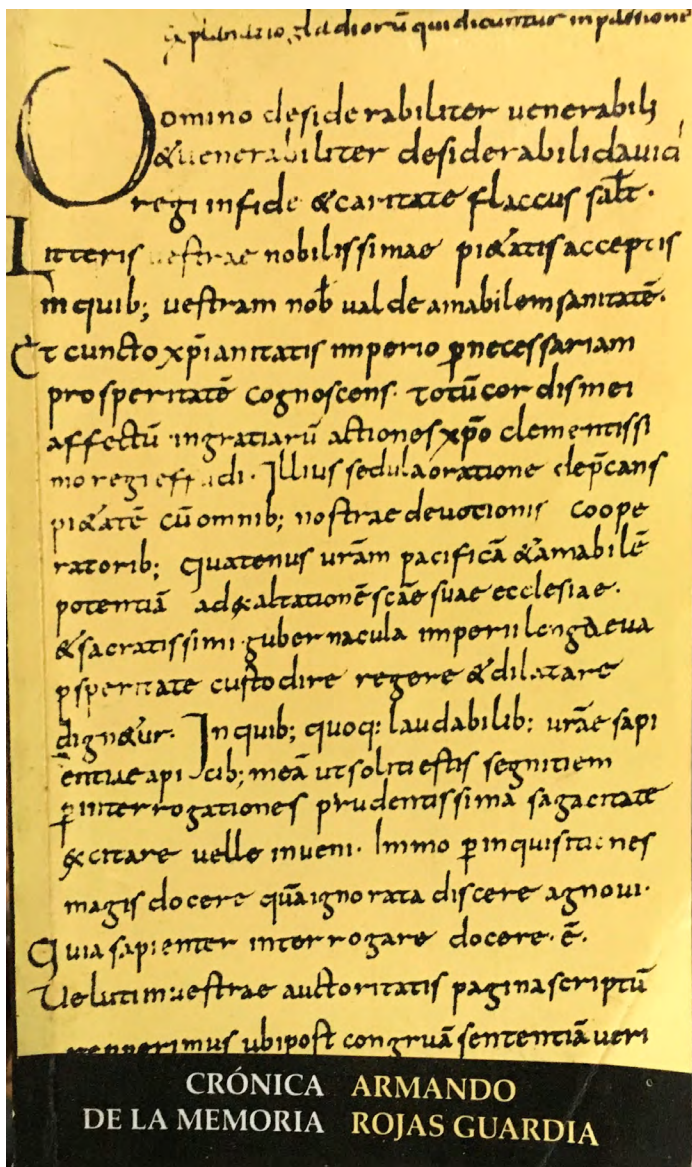 gladiorū qui dicuntur in passione
Domino desiderabiliter uenerabili
&uenerabiliter desiderabili dauid
regi in fide &caritate flaccus salt̄.
Litteris uestrae nobilissimae pi&atis acceptis
In quib; uestram nob̄ ualde amabilem sanitatē.
Et cuncto xp̄ianitatis imperio p̄necessariam
prosperitatē cognoscens. totū cordis mei
affectū in gratiarū actiones xp̄o clementissi
mo regi effudi. Illius sedula oratione dep̄cans
pi&atē cū omnib; nostrae deuotionis coope
ratorib; Quatenus urām pacificā &amabilē
potentiā ad exaltationē scāe suae ecclesiae.
&sacratissimi gubernacula imperii longaeua
p̱speritate custodire regere &dilatare
dign&ur. In quib; quoq: laudabilib: urāe sapi
entiae apicib; meā ut soliti estis segnitiem
p̱ interrogationes prudentissima sagacitate
excitare uelle inueni. Immo p̱ inquisitiones
magis docere quā ignorata discere agnoui.
Quia sapienter interrogare docere. ē.
Velut in uestrae auctoritatis pagina scriptū
repperimus ubi post congruā sententiā ueri
CRÓNICA
DE LA MEMORIA
ARMANDO
ROJAS GUARDIA